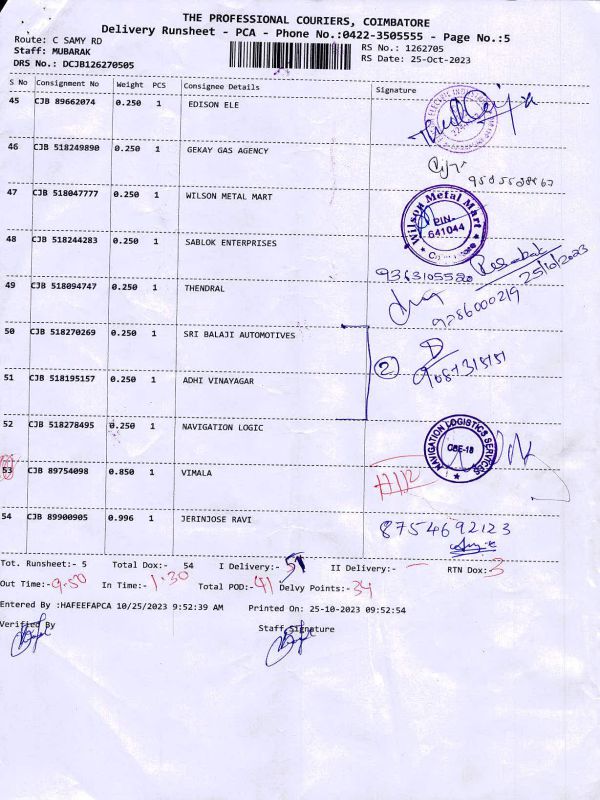 THE PROFESSIONAL COURIERS, COIMBATORE
Delivery Runsheet - PCA - Phone No.:0422-3505555 - Page No.:5
Route: C SAMY RD
RS No.: 1262705
Staff: MUBARAK
RS Date: 25-Oct-2023
DRS No.: DCJB126270505
S No Consignment No Weight PCS Consignee Details Signature
45 CJB 89662074 0.250 1 EDISON ELE
46 CJB 518249890 0.250 1 GEKAY GAS AGENCY
47 CJB 518047777 0.250 1 WILSON METAL MART
Wilson Metal Mart
PIN-
641044
48 CJB 518244283 0.250 1 SABLOK ENTERPRISES
9363105520
25/10/2023
49 CJB 518094747 0.250 1 THENDRAL
9786000219
50 CJB 518270269 0.250 1 SRI BALAJI AUTOMOTIVES
2
51 CJB 518195157 0.250 1 ADHI VINAYAGAR
52 CJB 518278495 0.250 1 NAVIGATION LOGIC
NAVIGATION LOGISTICS SERVICES
CBE-18
53 CJB 89754098 0.850 1 VIMALA
54 CJB 89900905 0.996 1 JERINJOSE RAVI
8754692123
Tot. Runsheet:- 5 Total Dox:- 54 I Delivery:- 51 II Delivery:- — RTN Dox:- 3
Out Time:- 9.50 In Time:- 1.30 Total POD:- 41 Delvy Points:- 34
Entered By :HAFEEFAPCA 10/25/2023 9:52:39 AM Printed On: 25-10-2023 09:52:54
Verified By Staff Signature